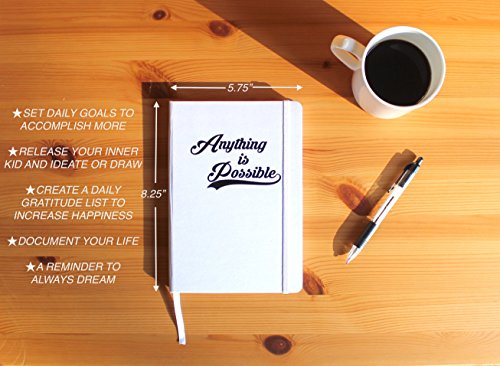 5.75"
★SET DAILY GOALS TO
ACCOMPLISH MORE
★RELEASE YOUR INNER
KID AND IDEATE OR DRAW
★CREATE A DAILY
GRATITUDE LIST TO
INCREASE HAPPINESS
★DOCUMENT YOUR LIFE
★A REMINDER TO
ALWAYS DREAM
8.25"
Anything
is
Possible